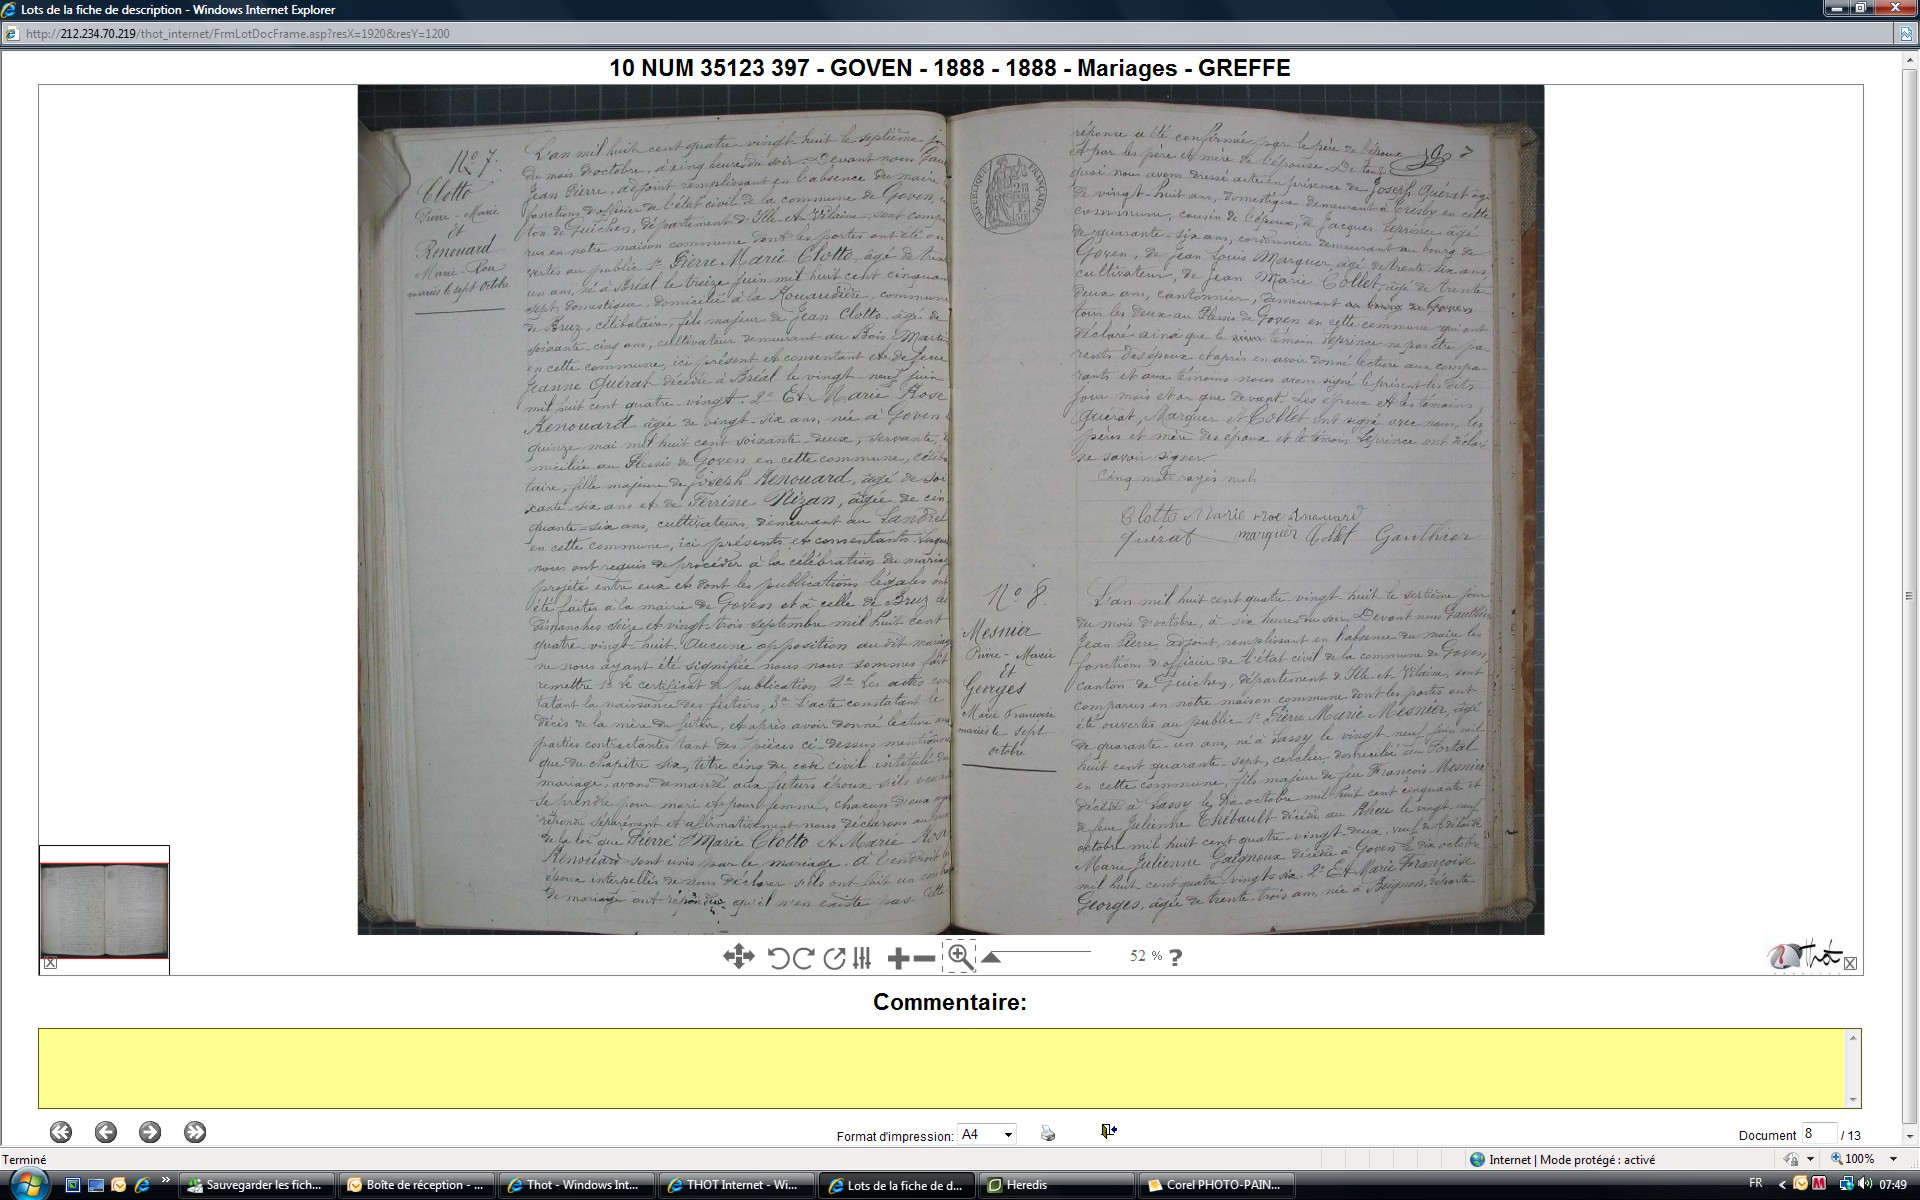 Lots de la fiche de description - Windows Internet Explorer
http://212.234.70.219/thot_internet/FrmLotDocFrame.asp?resX=1920&resY=1200
10 NUM 35123 397 - GOVEN - 1888 - 1888 - Mariages - GREFFE
N° 7.
Clotto
Pierre-Marie
et
Renouard
Marie-Rose
mariés le sept octobre
L'an mil huit cent quatre vingt-huit le septième
du mois d'octobre, à cinq heures du soir. Devant nous
Jean Pierre, adjoint remplissant en l'absence du maire
fonctions d'officier de l'état civil de la commune de Goven,
ton de Guichen, département d'Ille-et-Vilaine, sont compa
rus en notre maison commune dont les portes ont été ou
vertes au public 1° Pierre Marie Clotto, âgé de trente
un ans, né à Bréal le treize juin mil huit cent cinquante
sept, domestique, domicilié à la Rouaudière, commune
de Bruz, célibataire, fils majeur de Jean Clotto, âgé de
soixante-cinq ans, cultivateur demeurant au Bois
en cette commune, ici présent et consentant et de feue
Jeanne Quérat décédée à Bréal le vingt-neuf juin
mil huit cent quatre-vingt. 2° Et Marie Rose
Renouard âgée de vingt-six ans, née à Goven
quinze mai mil huit cent soixante-deux, servante,
miciliée au Plessis de Goven en cette commune, céliba
taire, fille majeure de Joseph Renouard, âgé de soi
xante-six ans et de Perrine Nizan, âgée de cin
quante-six ans, cultivateurs, demeurant au
en cette commune, ici présents et consentants. Lesquels
nous ont requis de procéder à la célébration du mariage
projeté entre eux et dont les publications légales ont
été faites à la mairie de Goven et à celle de Bruz les
dimanches seize et vingt-trois septembre mil huit cent
quatre-vingt-huit. Aucune opposition au dit mariage
ne nous ayant été signifiée nous nous sommes fait
remettre 1° Le certificat de publication 2° Les actes cons
tatant la naissance des futurs, 3° L'acte constatant le
décès de la mère du futur, et après avoir donné lecture aux
parties contractantes tant des pièces ci-dessus mentionnées
que du chapitre six, titre cinq du code civil intitulé du
mariage, avons demandé aux futurs époux s'ils veulent
se prendre pour mari et pour femme, chacun d'eux ayant
répondu séparément et affirmativement nous déclarons au nom
de la loi que Pierre Marie Clotto et Marie Rose
Renouard sont unis par le mariage. A l'endroit les
époux interpellés de nous déclarer s'ils ont fait un contrat
de mariage ont répondu qu'il n'en existe pas. Cette
RÉPUBLIQUE FRANÇAISE
réponse a été confirmée par le père de l'époux
et par les père et mère de l'épouse. De tout
quoi nous avons dressé acte en présence de Joseph Quérat âgé
de vingt-huit ans, domestique demeurant à Cresby en cette
commune, cousin de l'époux, de Jacques Leprince âgé
de quarante-six ans, cordonnier demeurant au bourg de
Goven, de Jean Louis Marquer, âgé de trente-six ans
cultivateur, de Jean Marie Collet, âgé de trente
deux ans, cantonnier, demeurant au bourg de Goven
tous les deux au Plessis de Goven en cette commune qui ont
déclaré ainsi que le témoin Leprince ne pas être pa
rents des époux et après en avoir donné lecture aux compa-
rants et aux témoins nous avons signé le présent les dits
jour mois et an que devant. Les époux et les témoins
Quérat, Marquer et Collet ont signé avec nous, les
pères et mère des époux et le témoin Leprince ont déclaré
ne savoir signer.
Cinq mots rayés nuls
Clotto Marie rose renouard
quérat marquer Collet Gauthier
N° 8.
Mesnier
Pierre-Marie
Et
Georges
Marie Françoise
mariés le sept
octobre
L'an mil huit cent quatre-vingt huit le septième jour
du mois d'octobre, à six heures du soir. Devant nous Gauthier
Jean Pierre, adjoint, remplissant en l'absence du maire les
fonctions d'officier de l'état civil de la commune de Goven,
canton de Guichen, département d'Ille-et-Vilaine, sont
comparus en notre maison commune dont les portes ont
été ouvertes au public 1° Pierre Marie Mesnier, âgé
de quarante-un ans, né à Lassy le vingt-neuf juin mil
huit cent quarante-sept, cerclier, domicilié au Portal
en cette commune, fils majeur de feu François Mesnier
décédé à Lassy le dix octobre mil huit cent cinquante et
de feue Julienne Thébault décédée au Rheu le vingt neuf
octobre mil huit cent quatre-vingt-deux, veuf de
Marie Julienne Gaigneux décédée à Goven le dix octobre
mil huit cent quatre-vingt-six. 2° Et Marie Françoise
Georges, âgée de trente-trois ans, née à Beignon, départe-
52 % ?
Thot
Commentaire:
Format d'impression: A4
Document 8 / 13
Terminé
Internet | Mode protégé : activé
100%
Sauvegarder les fich...
Boîte de réception - ...
Thot - Windows Int...
THOT Internet - Wi...
Lots de la fiche de d...
Heredis
Corel PHOTO-PAIN...
FR
07:49